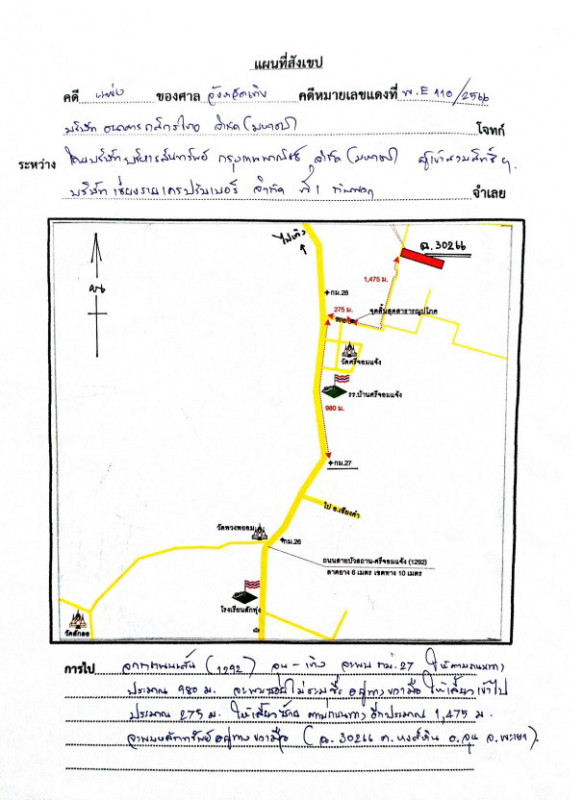 แผนที่สังเขป
คดี แพ่ง ของศาล จังหวัดเทิง คดีหมายเลขแดงที่ พ.E 110/2566
บริษัท ธนาคารกสิกรไทย จำกัด (มหาชน) โจทก์
ระหว่าง โดยบริษัทบริหารสินทรัพย์ กรุงเทพพาณิชย์ จำกัด (มหาชน) ผู้เข้าสวมสิทธิฯ
บริษัท เชียงราย จำกัด ที่ 1 กับพวก จำเลย
ไปเทิง
ฉ. 30266
เหนือ
1,475 ม.
กม.28
275 ม.
จุดสิ้นสุดสาธารณูปโภค
วัดศรีจอมแจ้ง
รร.บ้านศรีจอมแจ้ง
980 ม.
กม.27
ไป อ.เชียงคำ
วัดพวงพยอม
กม.26
ถนนสายบัวสถาน-ศรีจอมแจ้ง (1292)
ลาดยาง 6 เมตร เขตทาง 10 เมตร
โรงเรียนสักทุ่ง
วัดสักลอ
การไป จากถนนเส้น (1292) จุน - เทิง จะพบ กม.27 ให้ตามถนนทาง
ประมาณ 980 ม. จะพบซอยไม่ทราบชื่อ อยู่ทางขวามือ ให้เลี้ยวเข้าไป
ประมาณ 275 ม. ให้เลี้ยวซ้าย ตามถนนทางอีกประมาณ 1,475 ม.
จะพบหลักทรัพย์อยู่ทางขวามือ (ฉ. 30266 ต. หงส์หิน อ. จุน จ. พะเยา)